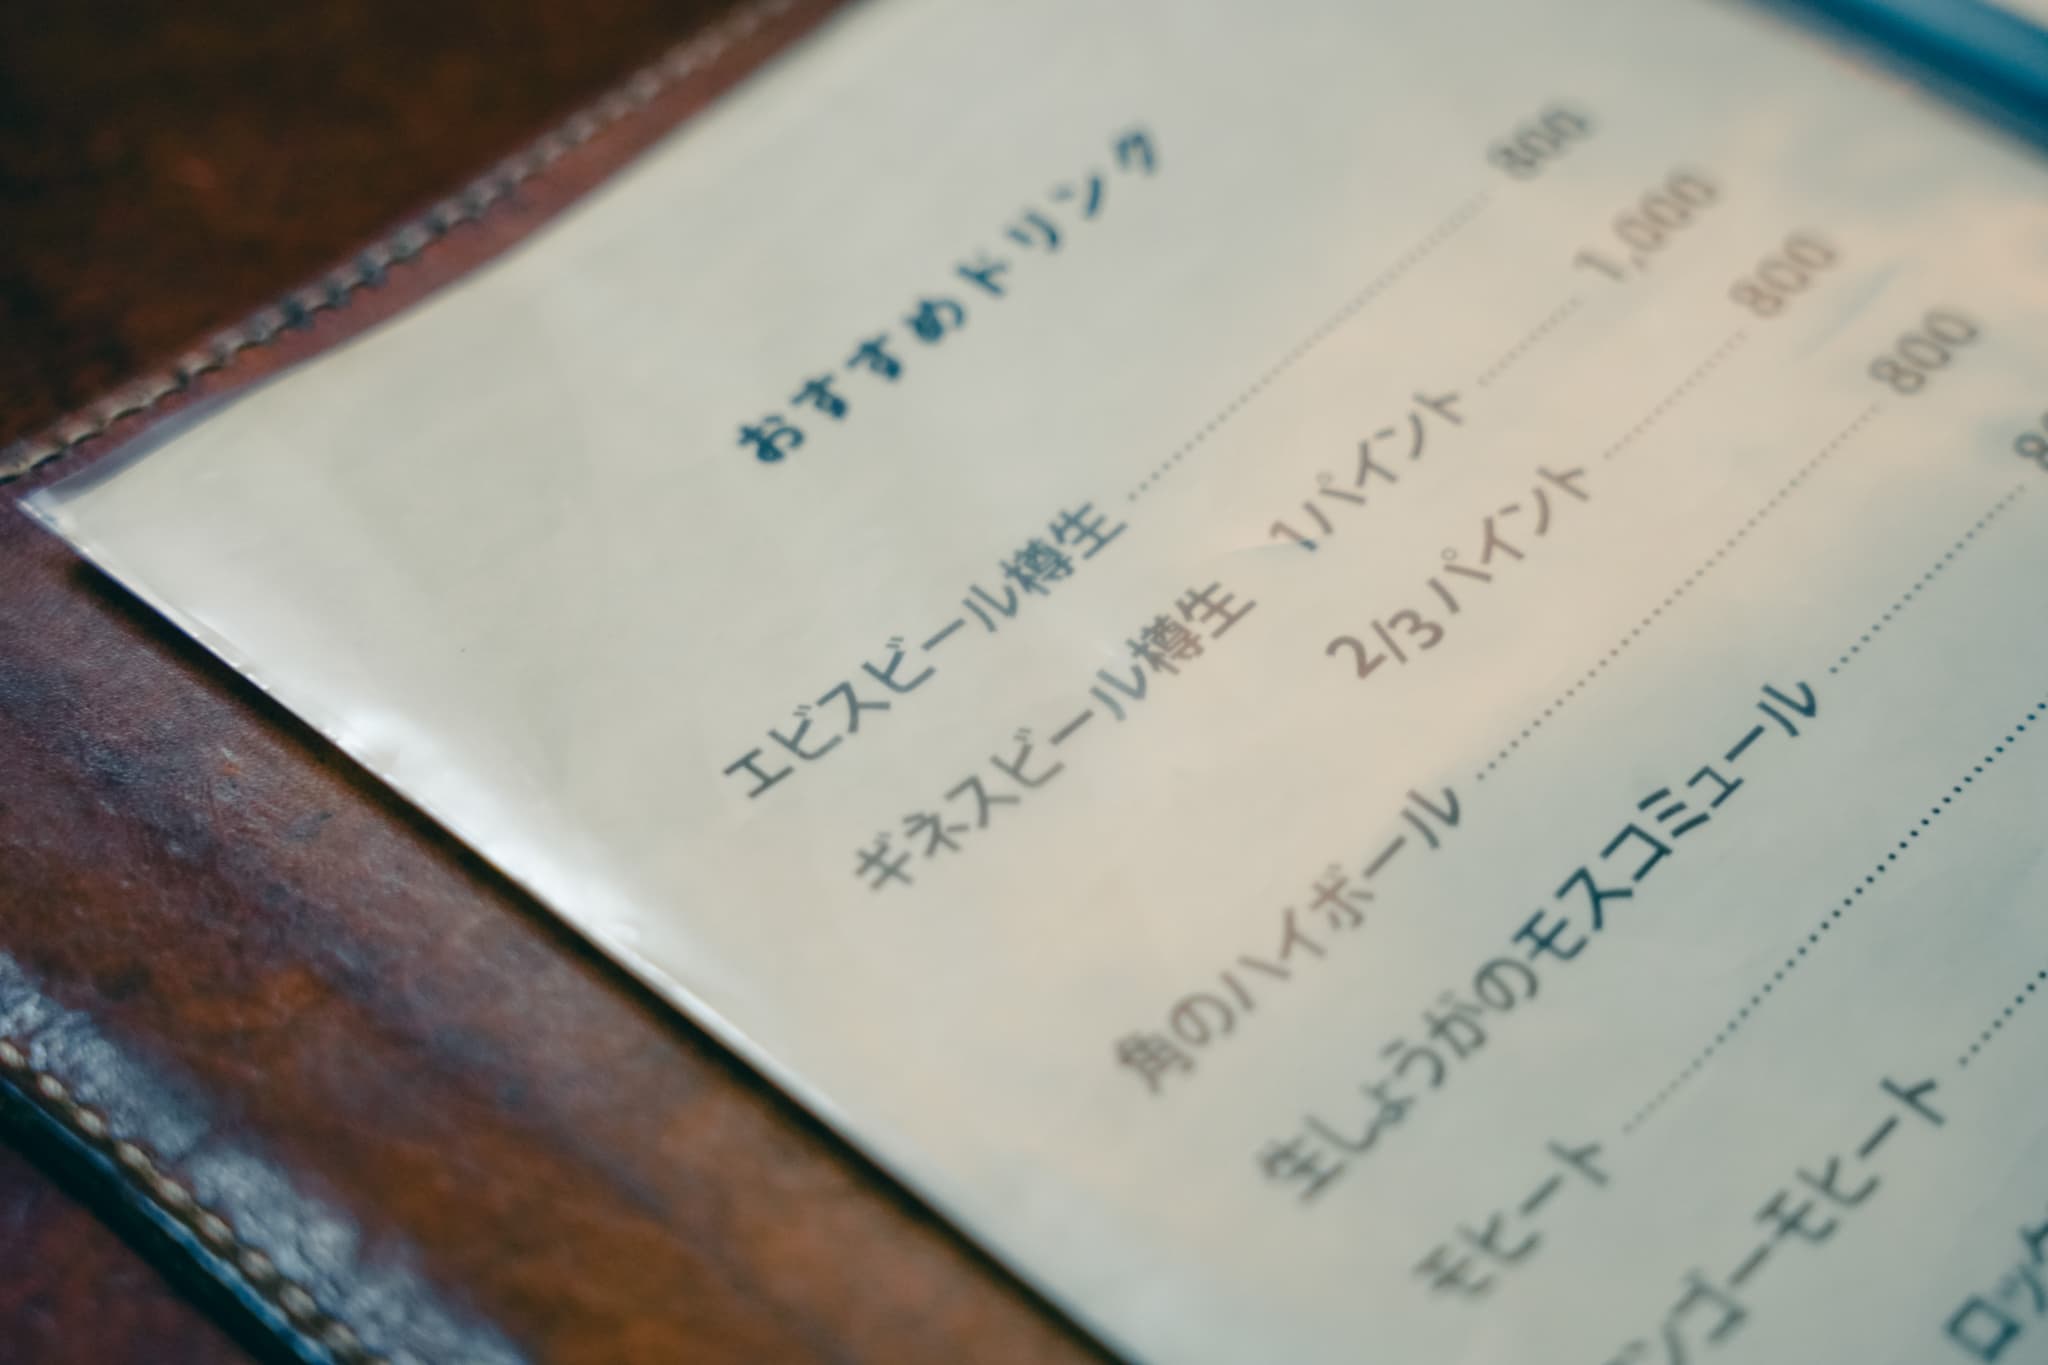 おすすめドリンク
エビスビール樽生 800
ギネスビール樽生 1パイント 1,000
2/3パイント 800
角のハイボール 800
生しょうがのモスコミュール
モヒート
ンゴーモヒート
ロック